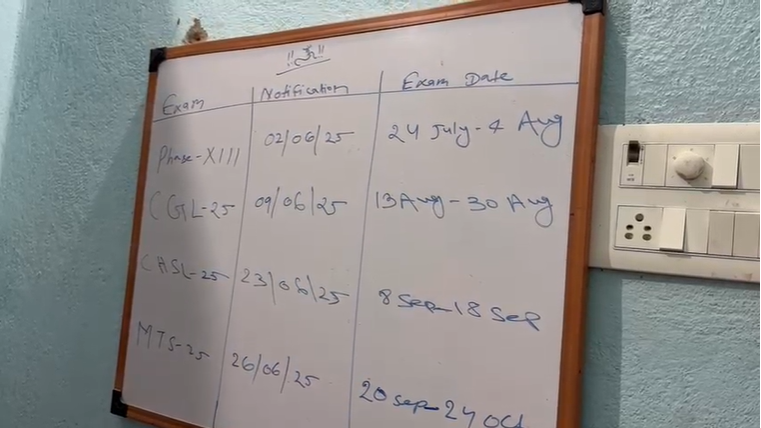 !! ॐ !!
Exam Notification Exam Date
Phase-XIII 02/06/25 24 July-4 Aug
CGL-25 09/06/25 13 Aug-30 Aug
CHSL-25 23/06/25 8 Sep-18 Sep
MTS-25 26/06/25 20 Sep-24 Oct